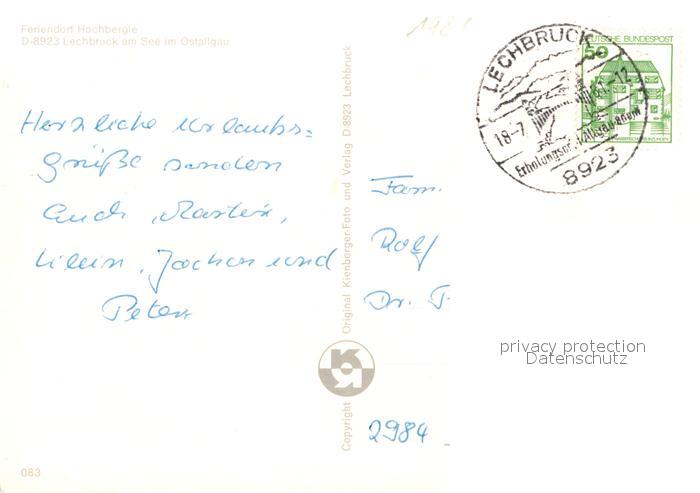 Feriendorf Hochbergle
D-8923 Lechbruck am See im Ostallgäu
Herzliche Urlaubs-
grüße senden
Euch
Jochen und
Peter
083
Copyright
Original Kienberger-Foto und Verlag D-8923 Lechbruck
1981
LECHBRUCK
18-7
-12
Erholungsort
8923
50
DEUTSCHE BUNDESPOST
Fam.
Rolf
Dr. T.
2984
privacy protection
Datenschutz